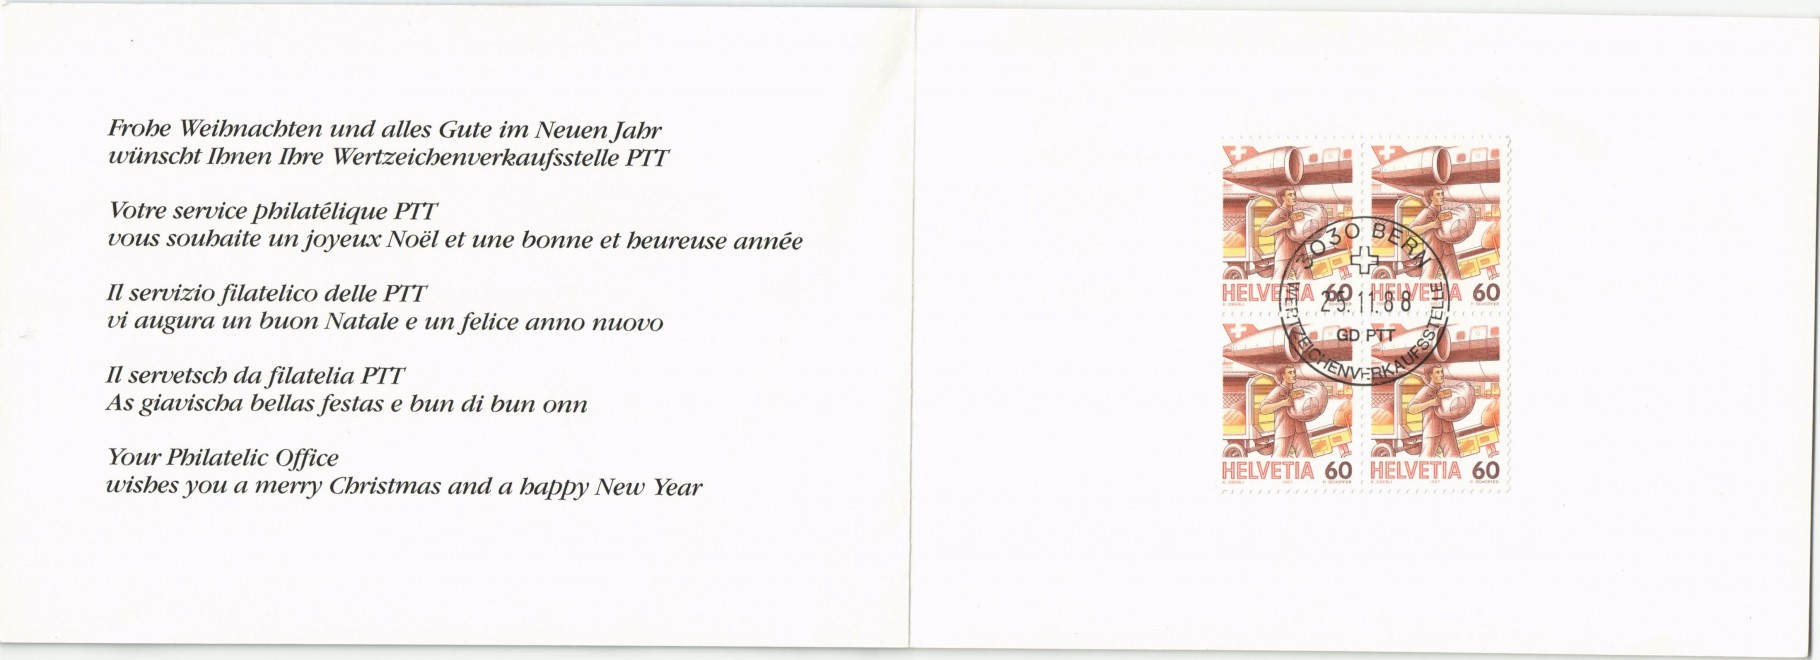 Frohe Weihnachten und alles Gute im Neuen Jahr
wünscht Ihnen Ihre Wertzeichenverkaufsstelle PTT
Votre service philatélique PTT
vous souhaite un joyeux Noël et une bonne et heureuse année
Il servizio filatelico delle PTT
vi augura un buon Natale e un felice anno nuovo
Il servetsch da filatelia PTT
As giavischa bellas festas e bun di bun onn
Your Philatelic Office
wishes you a merry Christmas and a happy New Year
3030 BERN
25.11.88
GD PTT
WERTZEICHENVERKAUFSSTELLE
HELVETIA 60
HELVETIA 60
HELVETIA 60
HELVETIA 60